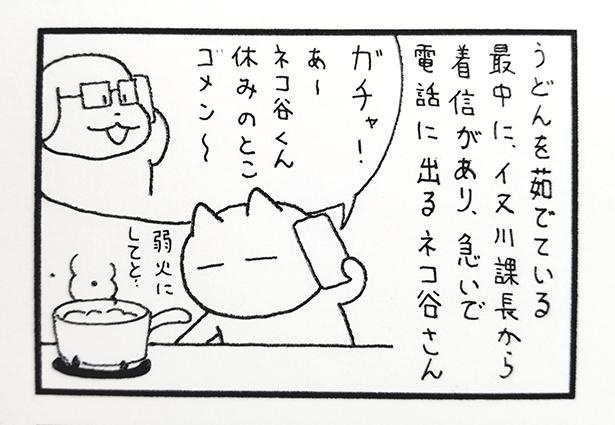 うどんを茹でている
最中に、イヌ川課長から
着信があり、急いで
電話に出るネコ谷さん
ガチャ!
あ〜
ネコ谷くん
休みのとこ
ゴメン〜
弱火に
してと‥